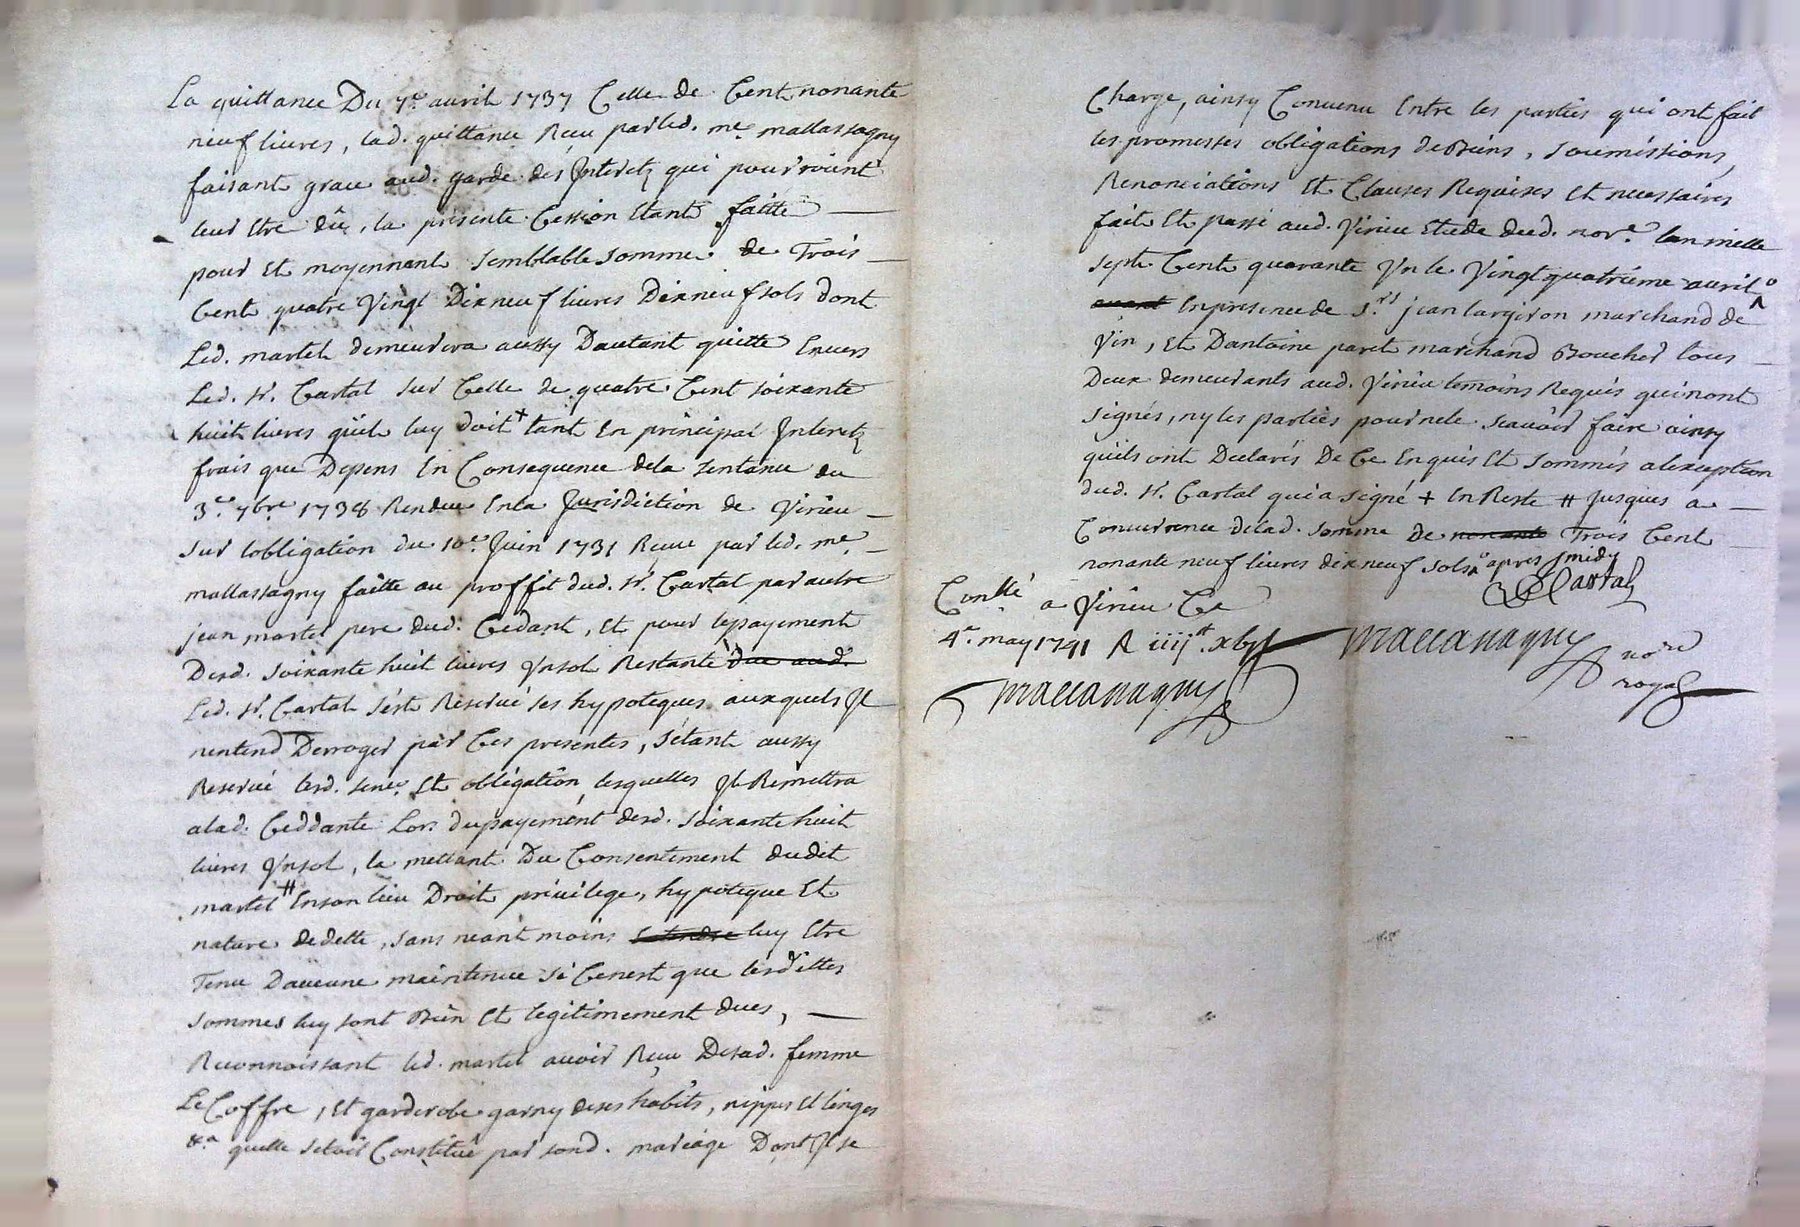 La quittance Du 7e. auril 1737 Celle de Cent nonante
neuf liures, lad. quittance Reçu par led. me. mallassagny
faisant grace aud. garde des Jnteretz qui pourroient
leur Etre dûs, la presente Cession Etant faitte —
pour Et moyennant semblable somme de Trois —
Cent quatre Vingt Dixneuf liures Dixneuf sols dont
Led. martel demeurera aussy Dautant quitte Enuers
Led. sr. Cartal sur Celle de quatre Cent soixante
huit liures quil luy doit + tant En principal Jnteretz
frais que Depens En Consequence dela sentance du
3e. 7bre 1738 Rendue Enla Jurisdiction de Virieu —
sur lobligation du 10e. Juin 1731 Reçue par led. me. —
mallassagny faitte au proffit dud. sr. Cartal par autre
jean martel pere dud. Cedant, Et pour lepayement
Desd. soixante huit liures Vnsol Restante due aud.
Led. sr. Cartal sest Reserué ses hypoteques auxquels Jl
nentend Derroger par Ces presentes, sétant aussy
Reserué lesd. sence. Et obligation, lesquelles Jl Remettra
alad. Ceddante Lors dupayement desd. soixante huit
liures Vnsol, la mettant Du Consentement dudit
martel # Enson lieu Droit priuilege, hypoteque Et
nature dedette, sans neant moins luy Etre
Tenu Daucune maintenue si Cenest que lesdittes
sommes luy sont Bien Et legitimement dues, —
Reconnoissant led. martel auoir Reçu Desad. femme
Le Coffre, Et garderobe garny deses habits, nippes Et linges
&a quelle sétoit Constitué par sond. mariage Dont Jl se
Charge, ainsy Conuenu Entre les parties qui ont fait
les promesses obligations de Biens, soumissions,
Renonciations Et Clauses Requises Et necessaires
fait Et passé aud. Virieu Etude dud. nore. lan mille
sept Cent quarante Vn le Vingtquatrieme auril o
^
auant Enpresence de Srs jean largiron marchand de
Vin, Et Dantoine paret marchand Boucher tous —
Deux demeurants aud. Virieu temoins Requis quinont
signés, ny les parties pour ne le scauoir faire ainsy
quils ont Declarés De Ce Enquis Et sommés alexception
dud. sr. Cartal qui a signé + En Reste # Jusques a —
Concurrence delad. somme De nonante Trois Cent
nonante neuf liures dixneuf sols o apres midy
Cartal
Conllé a Virieu Ce
4e. may 1741 R iiij# xbjs
maccanagny
maccanagny nore
royal